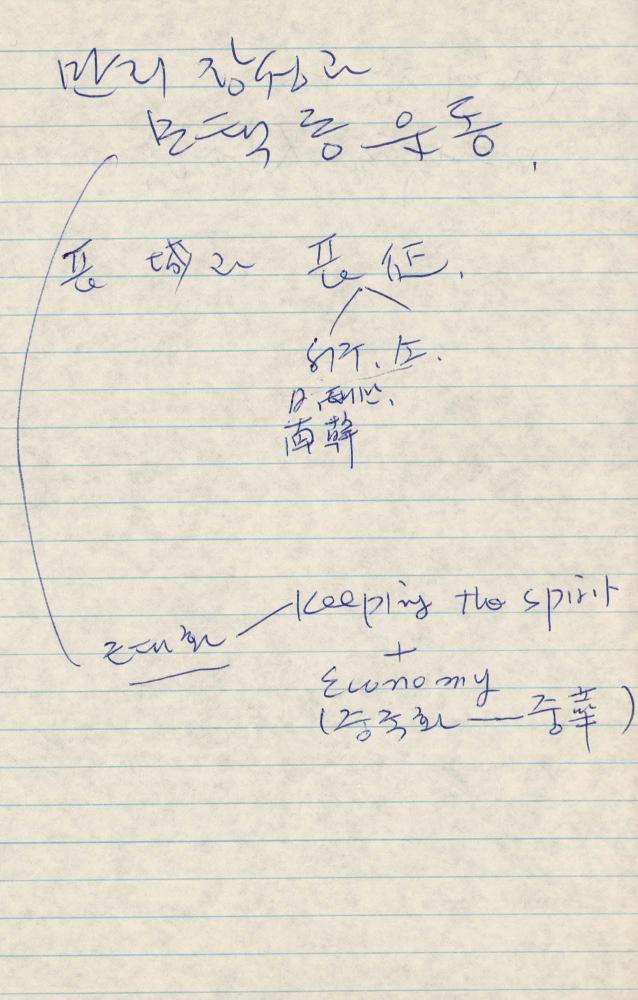 만리 장성과
모택동 운동.
長 城과 長 征.
南韓
근대화 Keeping the spirit
+
Economy
(중국화 — 중華)